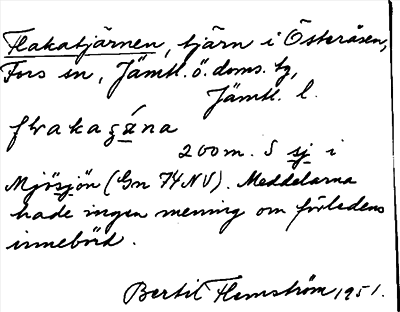 Flakatjärnen, tjärn i Österåsen,
Fors sn, Jämtl. ö. doms. tg,
Jämtl. l.
200 m. S sj i
Mjösjön (Gn 74 NV). Meddelarna
hade ingen mening om förledens
innebörd.
Bertil Flemström 1951.